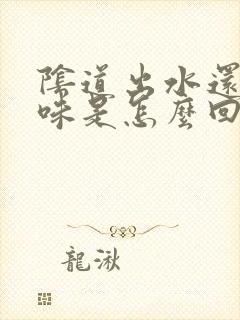 陰道出水還
味是怎麼回
龍湫